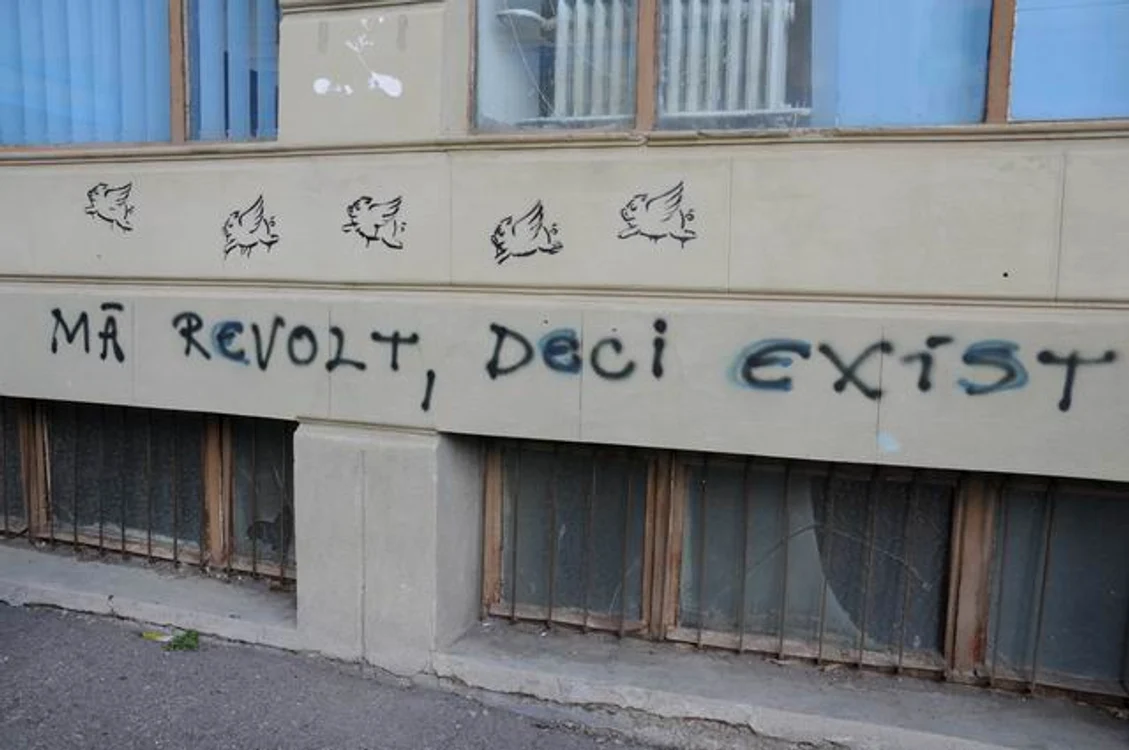 MĂ REVOLT, DECI EXIST